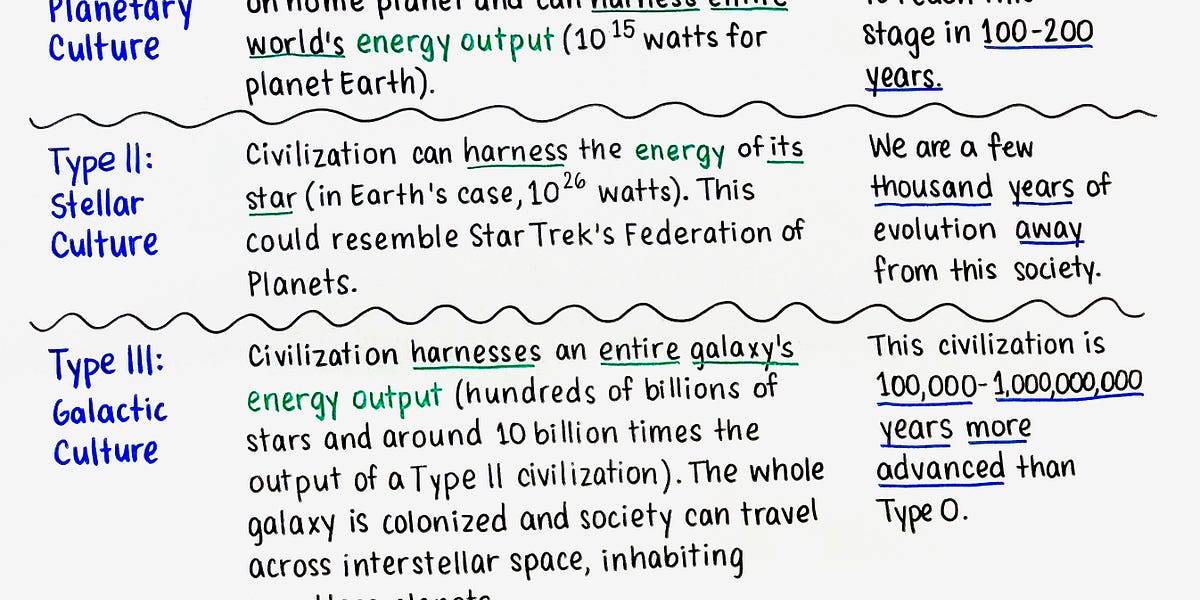 Planetary
Culture
on home planet and can harness entire
world's energy output (10^15 watts for
planet Earth).
stage in 100-200
years.
Type II:
Stellar
Culture
Civilization can harness the energy of its
star (in Earth's case, 10^26 watts). This
could resemble Star Trek's Federation of
Planets.
We are a few
thousand years of
evolution away
from this society.
Type III:
Galactic
Culture
Civilization harnesses an entire galaxy's
energy output (hundreds of billions of
stars and around 10 billion times the
output of a Type II civilization). The whole
galaxy is colonized and society can travel
across interstellar space, inhabiting
This civilization is
100,000-1,000,000,000
years more
advanced than
Type 0.